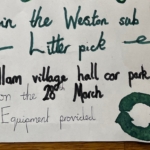 in the Weston sub
Litter pick
llam village hall car park
on the 28th March
Equipment provided